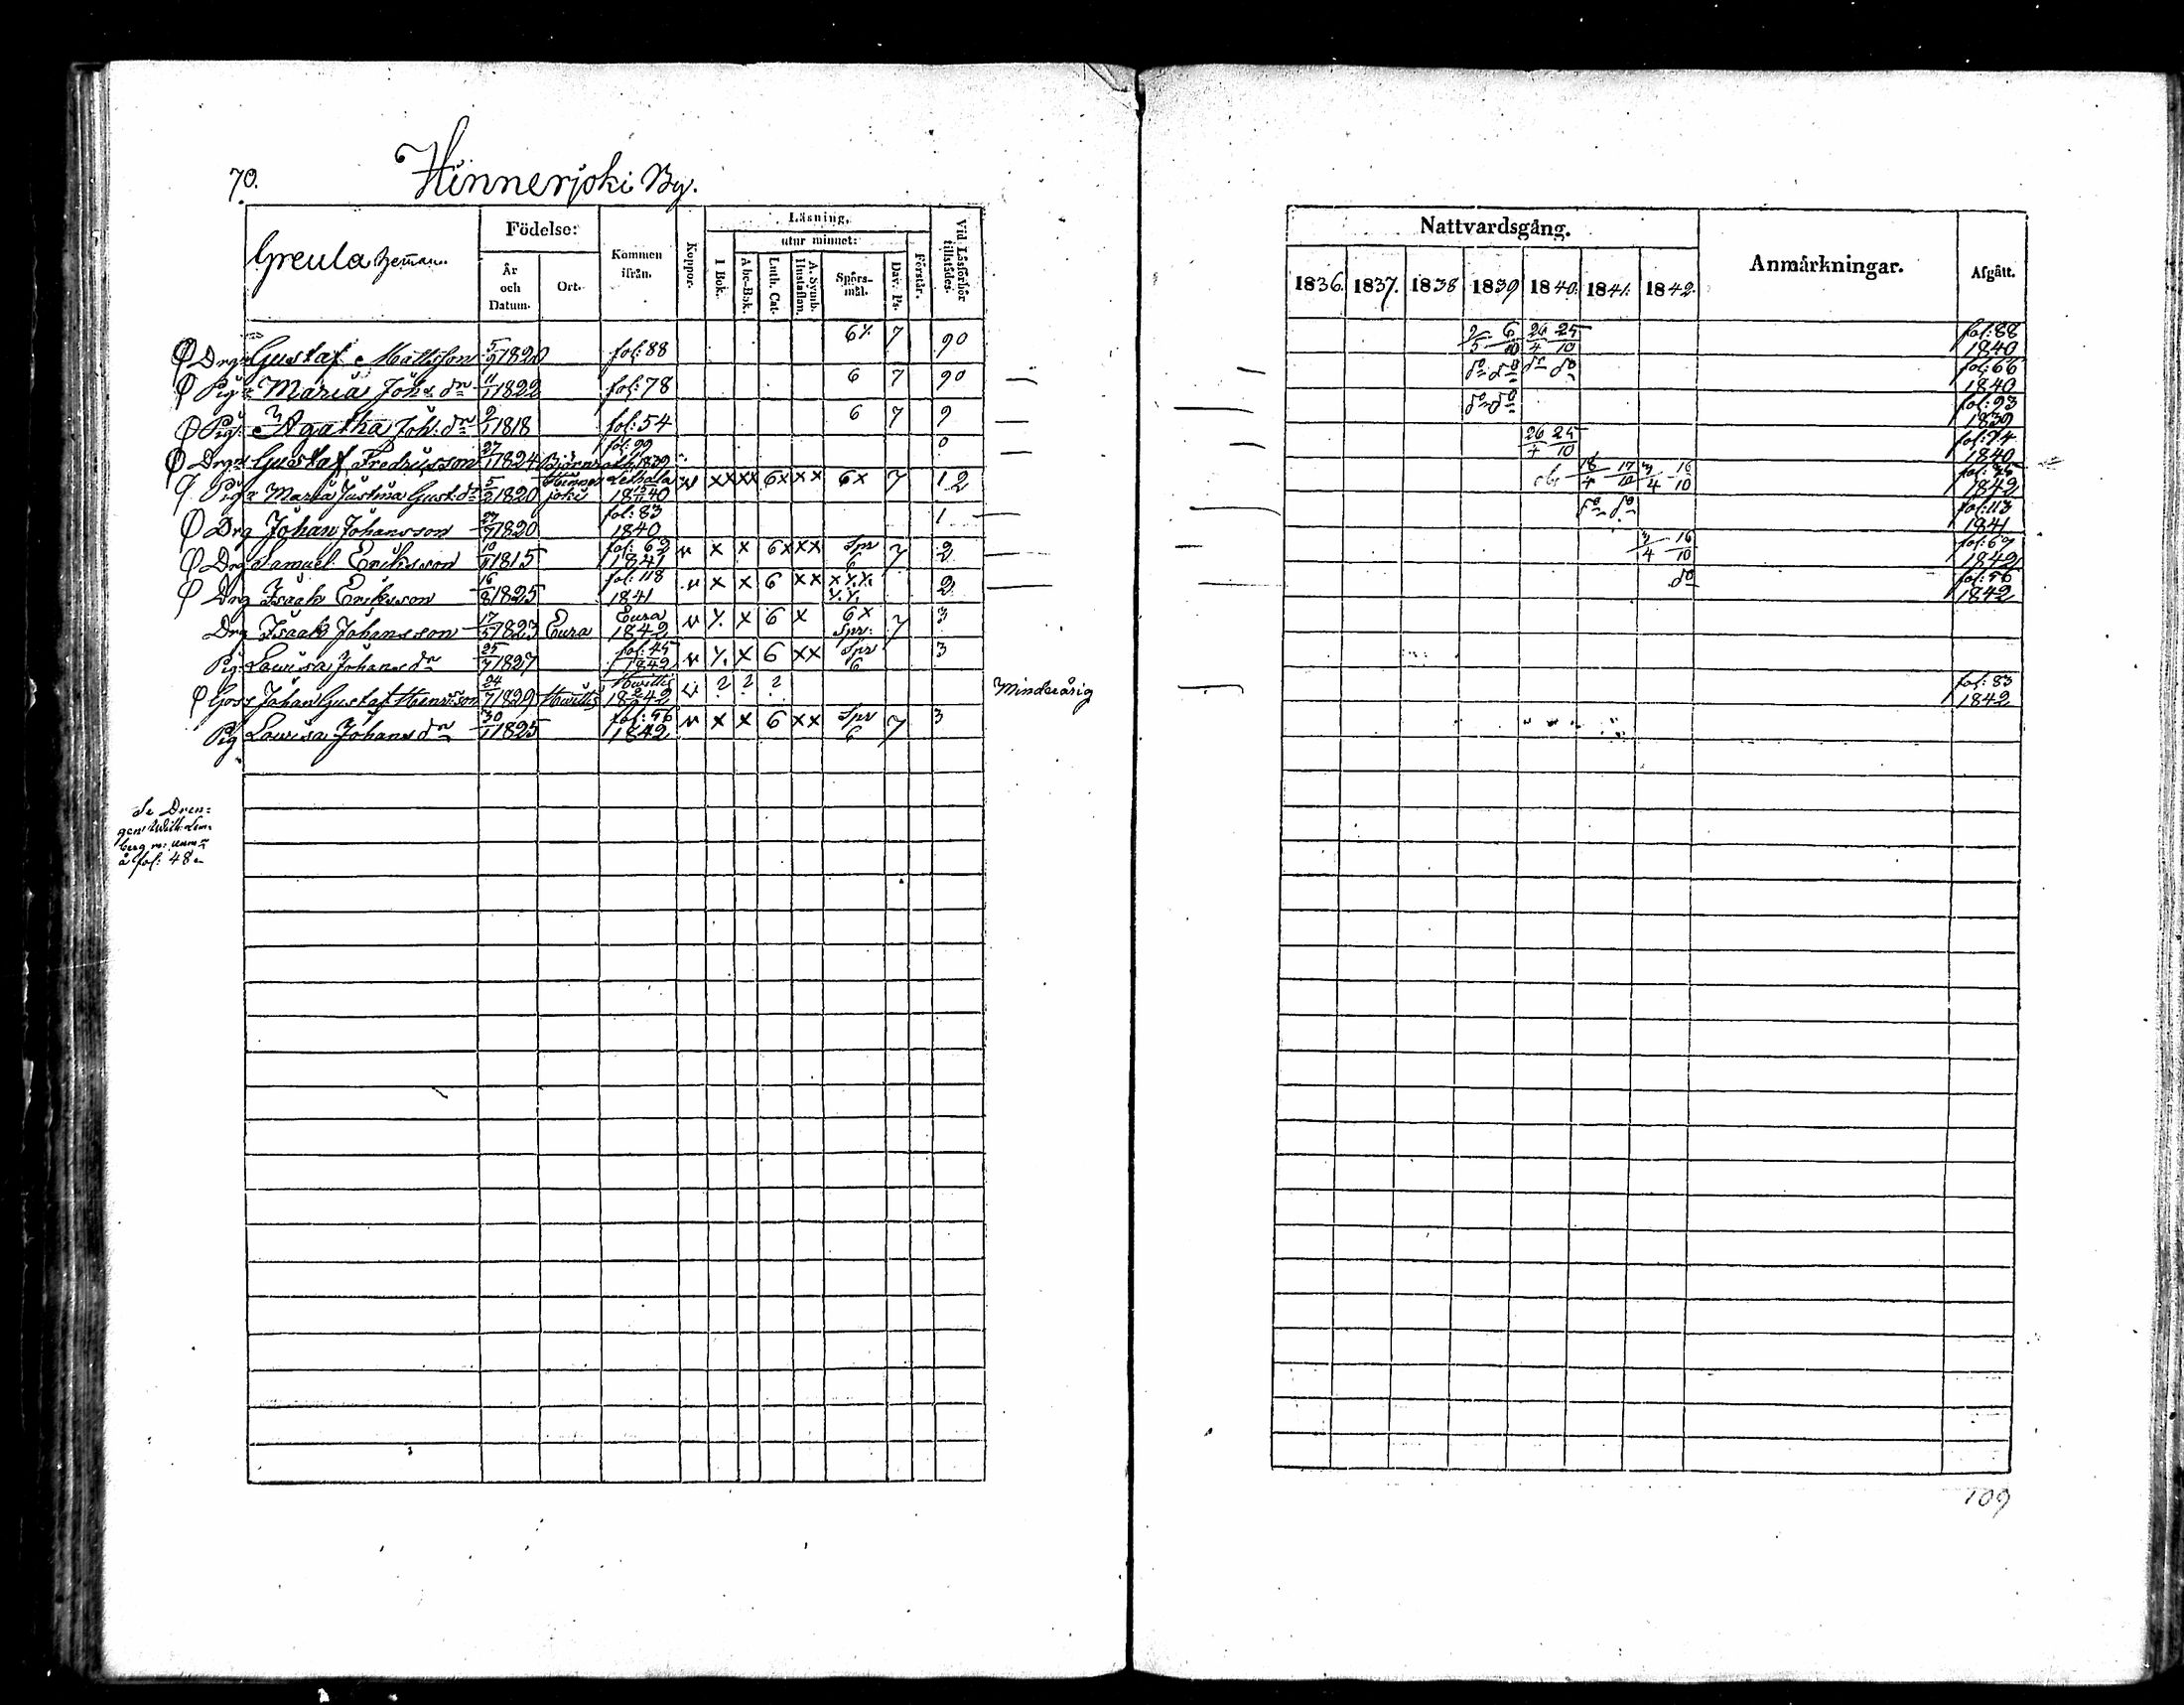 70. Hinnerjoki By.
Greula heman.
Födelse:
År och Datum.
Ort.
Kommen ifrån.
Koppor.
Läsning.
I Bok.
utur minnet:
Abc-Bok.
Luth. Cat.
A. Symb. Hustaflan.
Spörs-mål.
Dav. Ps.
Förstår.
Vid Läsförhör tillstädes.
Nattvardsgång.
1836. 1837. 1838 1839 1840. 1841. 1842.
Anmärkningar.
Afgått.
Drgn Gustaf Mattsson 5/9 1820 fol: 88 6 7 90 26/4 25/10 fol: 88 1840
Pig: Maria Joh: dr 11/1 1822 fol: 78 6 7 90 do do do do fol: 66 1840
Pig: Agatha Joh: dr 2/1 1818 fol: 54 6 7 9 do do fol: 93 1839
Drgn Gustaf Fredricsson 27/1 1824 fol: 99 1839 0 26/4 25/10 fol: 74 1840
Piga Maria Justina Gust: dr 5/2 1820 Hinnerjoki Lethala 1840 x x x x 6x x x 6x 7 1 2 18/4 17/10 3/4 16/10 1842
Drg Johan Johansson 27/7 1820 fol: 83 1840 1 do do fol: 113 1841
Drg Samuel Ericksson 10/11 1815 fol: 62 1841 x x 6x x x Spr 6 7 2 3/4 16/10 fol: 67 1842
Drg Isaak Ericksson 16/8 1825 fol: 118 1841 x x 6 x x 2 do fol: 56 1842
Drg Isaak Johansson 17/5 1823 Eura Eura 1842 x 6 x 6x Spr: 7 3
Pig: Lovisa Johans dr 25/7 1827 fol: 45 1842 x 6 x x Spr 6 3
Goss Johan Gustaf Henricsson 24/7 1829 Hvittis Hvittis 1842 2 2 2 Minderårig fol: 83 1842
Pig Lovisa Johans dr 30/1 1825 fol: 56 1842 x x 6 x x Spr 6 7 3
Se Dren=
gen Wilh: Lem=
berg m:
å fol: 48
109